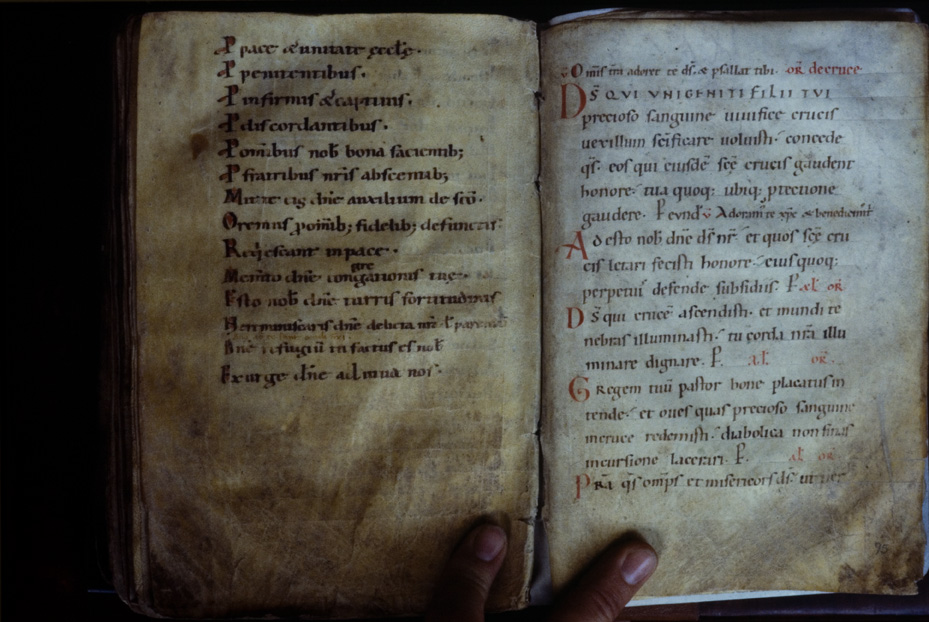 P pace & unitate eccłę.
P penitentibus.
P infirmis & captiuis.
P discordantibus.
P omibus nob̄ bona facientib;
P fratribus nr̄is absentib;
Mitte eis dn̄e auxilium de sco.
Oremus p omib; fidelib; defunctis.
Requiescant in pace.
Mem̄to dn̄e congregationis tuę.
Esto nob̄ dn̄e turris fortitudinis
Ne reminiscaris dn̄e delicta nr̄a ł parentū
Dn̄e refugiū factus es nob̄
Exurge dn̄e adiuua nos.
Omīs tr̄a adoret te ds̄. & psallat tibi. OR̄ de cruce.
DS̄ QUI UNIGENITI FILII TUI
precioso sanguine uiuifice crucis
uexillum sc̄ificare uoluisti. concede
qs̄. eos qui eiusdē scē crucis gaudent
honore. tua quoq; ubiq; ꝓtectione
gaudere. P eund̄ v̄ Adoram̄ te xp̄e & benedicim̄ t̄
Adesto nob̄ dn̄e ds̄ nr̄. et quos scē cru
cis letari fecisti honore. eius quoq;
perpetuis defende subsidiis. P. ał. or̄
DS̄ qui crucē ascendisti. et mundi te
nebras illuminasti. tu corda nr̄a illu
minare dignare. P. ał. or̄.
Gregem tuū pastor bone placatus in
tende. et oues quas precioso sanguine
in cruce redemisti. diabolica non sinas
incursione lacerari. P. ał. or̄
PRA qs̄ omp̄s et misericors ds̄. ut
95